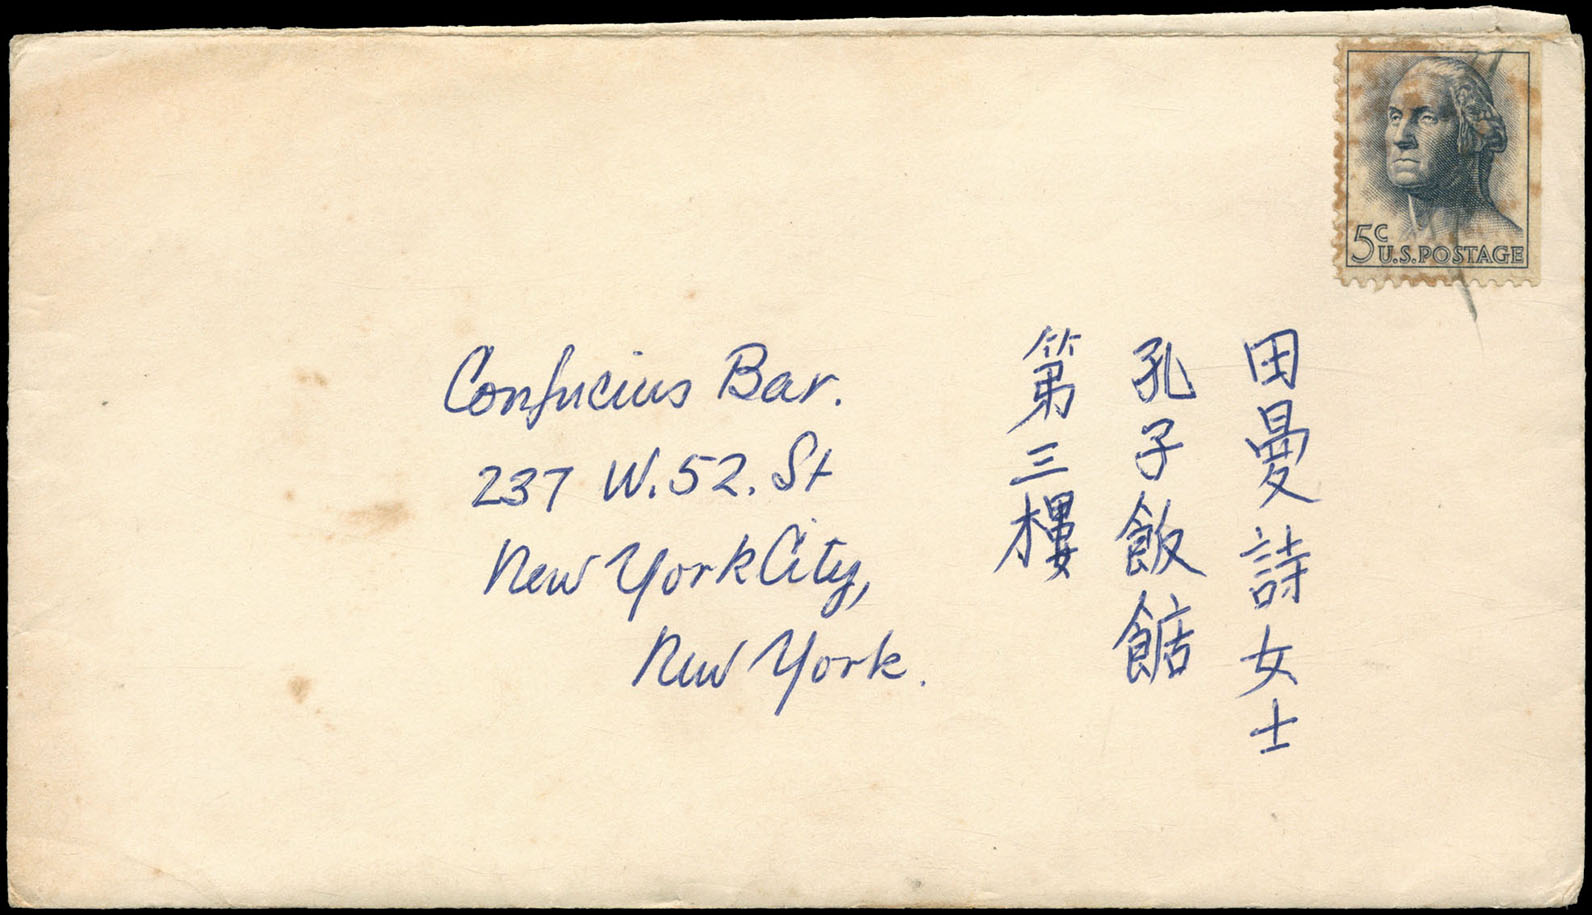 5c
U.S. POSTAGE
Confucius Bar.
237 W. 52. St
New York City,
New York.
田曼詩女士
孔子飯館
第三樓